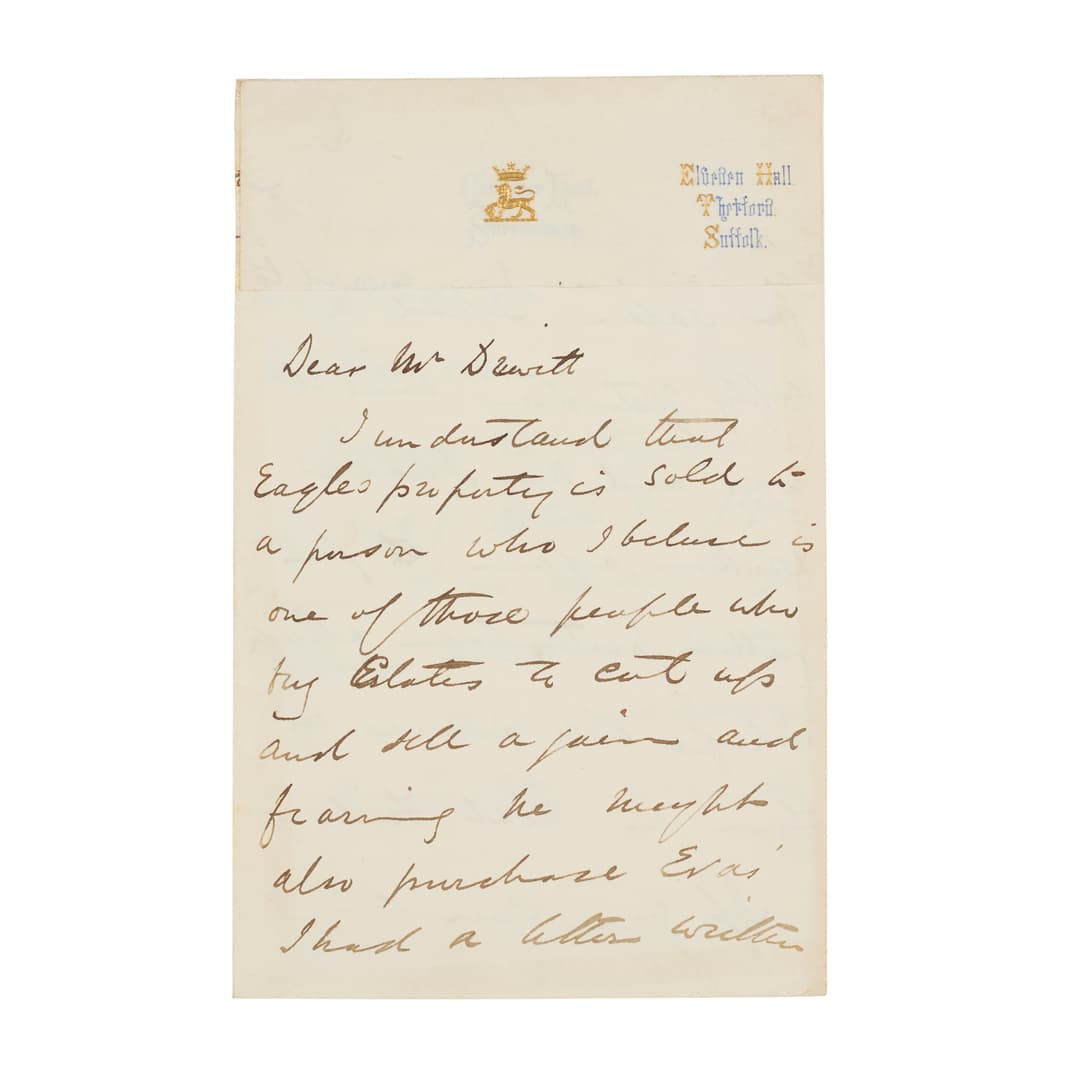 Elveden Hall
Thetford.
Suffolk.
Dear Mr
I understand that
Eagles property is sold to
a person who I believe is
one of those people who
buy Estates to cut up
and sell again and
fearing he might
also purchase
I had a letter written